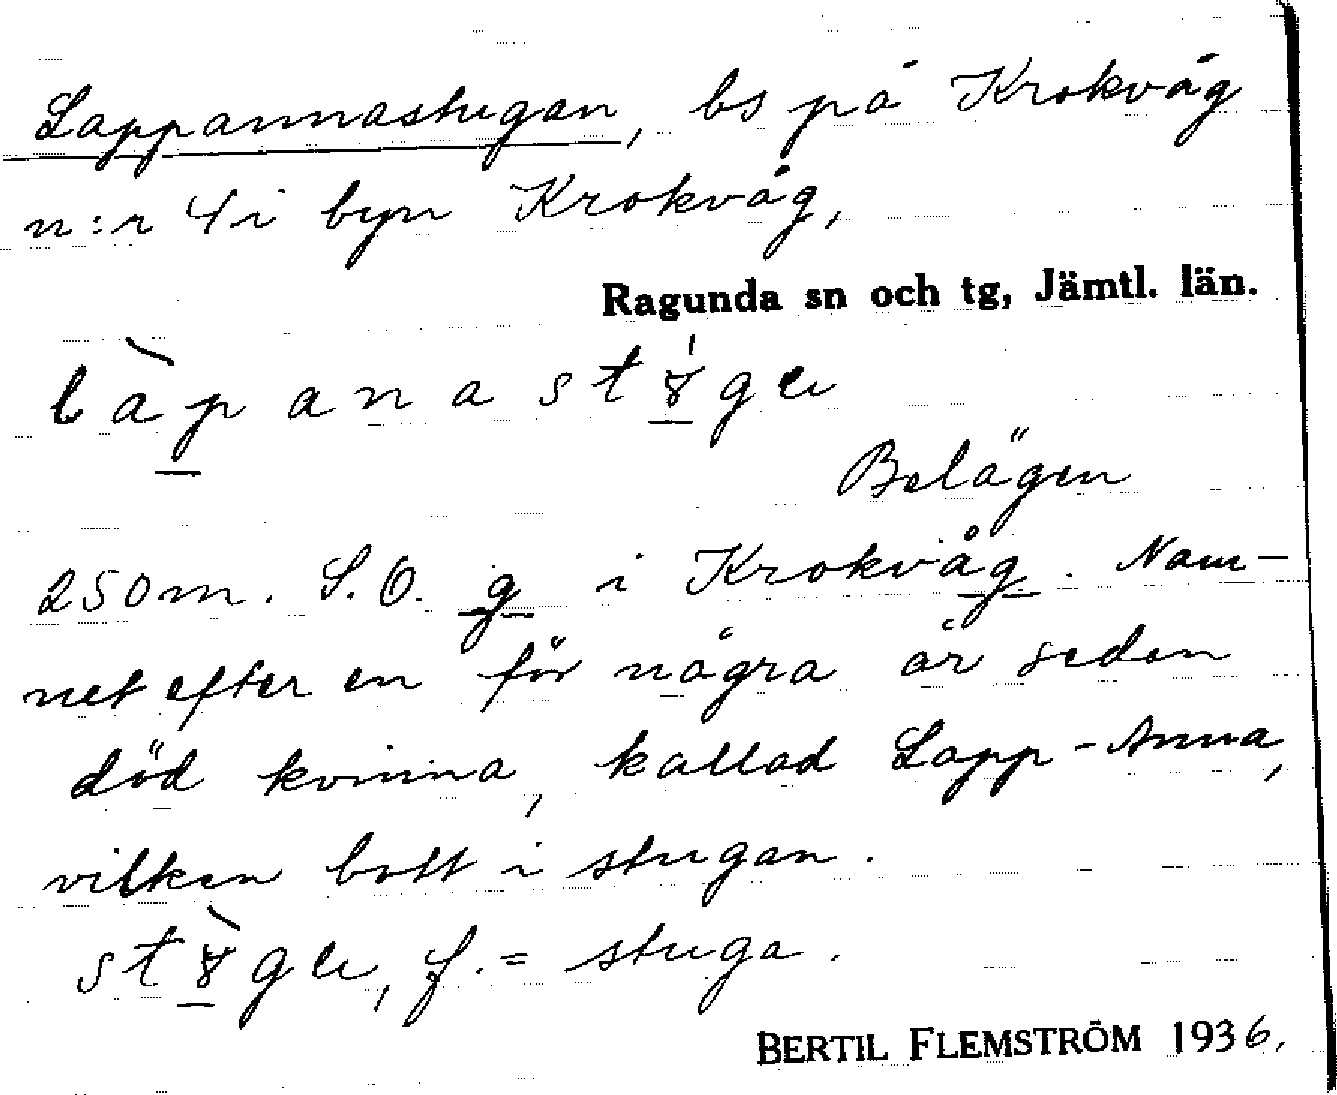 Lappannastugan, bs på Krokvåg
n:r 4 i byn Krokvåg,
Ragunda sn och tg, Jämtl. län.
Belägen
250 m. S.O. g i Krokvåg. Nam-
net efter en för några år sedan
död kvinna, kallad Lapp-Anna,
vilken bott i stugan.
f. = stuga.
BERTIL FLEMSTRÖM 1936.